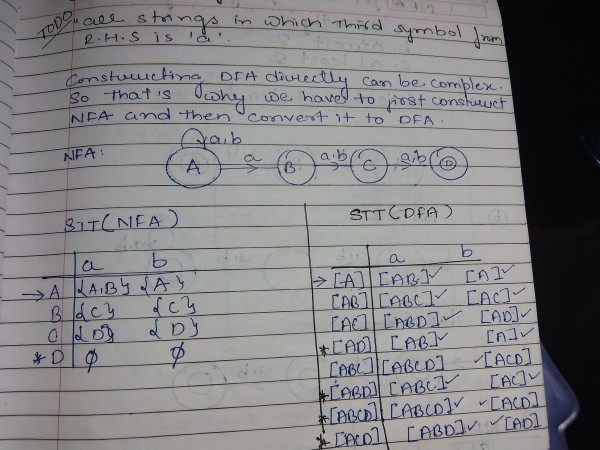 TODO: all strings in which third symbol from
R.H.S is 'a'.
Constructing DFA directly can be complex.
So that is why we have to first construct
NFA and then convert it to DFA.
a,b
NFA: A a B a,b C a,b D
STT(NFA)
a b
→ A {A,B} {A}
B {C} {C}
C {D} {D}
* D ϕ ϕ
STT(DFA)
a b
→ [A] [AB]✓ [A]✓
[AB] [ABC]✓ [AC]✓
[AC] [ABD]✓ [AD]✓
* [AD] [AB]✓ [A]✓
[ABC] [ABCD] ✓[ACD]
* [ABD] [ABC]✓ [AC]✓
* [ABCD] [ABCD]✓ ✓[ACD]
* [ACD] [ABD]✓ ✓[AD]